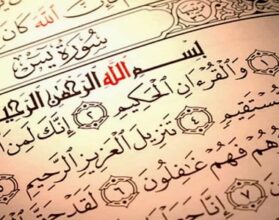 ٱللَّهَ كَانَ
سُورَةُ يسٓ
بِسْمِ ٱللَّهِ ٱلرَّحْمَٰنِ ٱلرَّحِيمِ
١ وَٱلْقُرْءَانِ ٱلْحَكِيمِ ٢ إِنَّكَ لَمِنَ
سْتَقِيمٍ ٤ تَنزِيلَ ٱلْعَزِيزِ ٱلرَّحِيمِ
هُمْ فَهُمْ غَٰفِلُونَ ٦ لَقَدْ
٧ إِنَّا